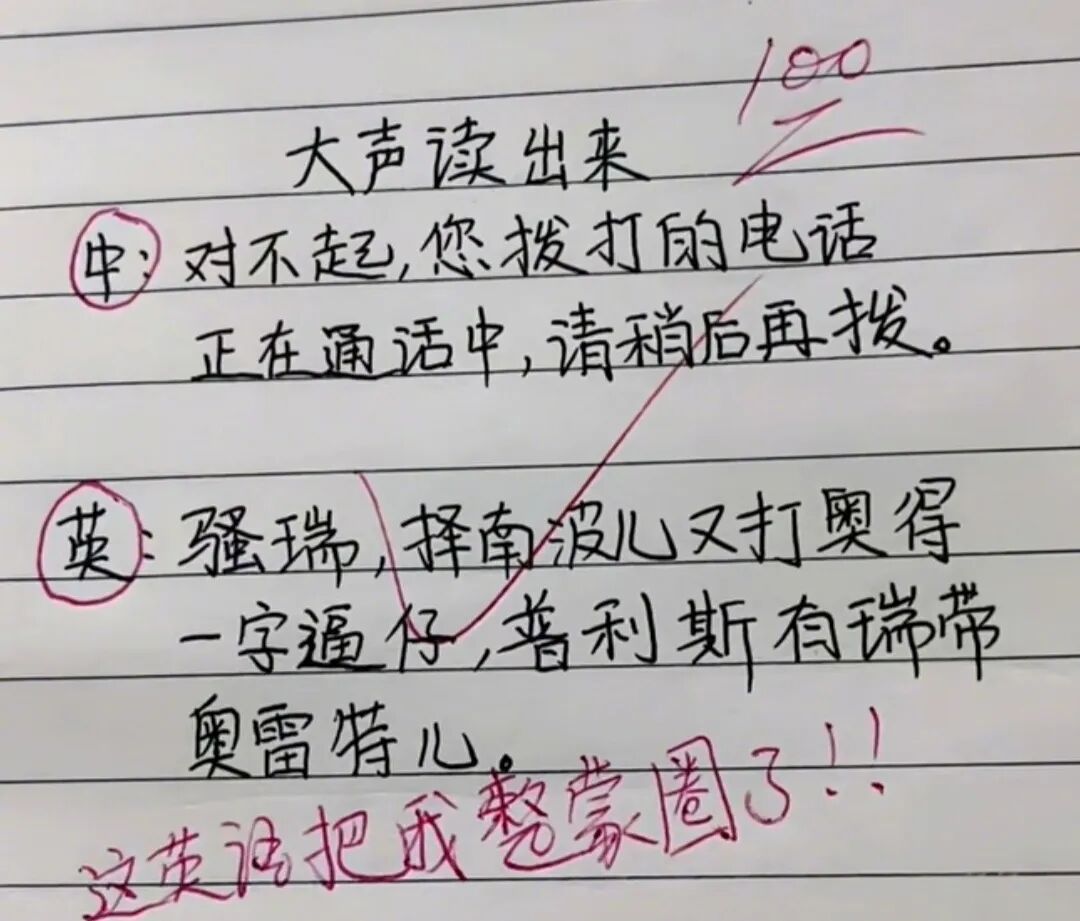 100
大声读出来
中：对不起，您拨打的电话
正在通话中，请稍后再拨。
英：骚瑞，择南波儿又打奥得
一字逼仔，普利斯有瑞带
奥雷特儿。
这英语把我整蒙圈了！！